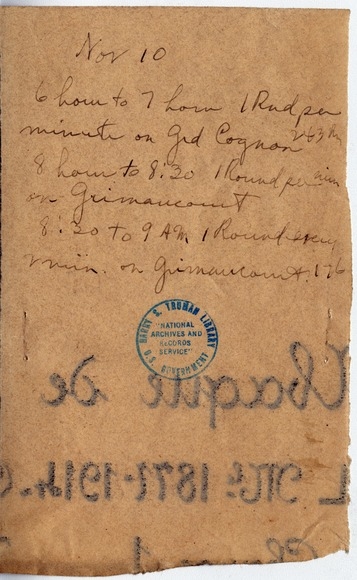 Nov 10
6 hour to 7 hour 1 Rnd per
minute on Grd Cognon 263
8 hour to 8:30 1 Round per min
on Grimaucourt
8:30 to 9 AM 1 Round every
min. on Grimaucourt. 176
HARRY S. TRUMAN LIBRARY
"NATIONAL
ARCHIVES AND
RECORDS
SERVICE"
U.S. GOVERNMENT
Plaque de
L. Mle 1877-1914.